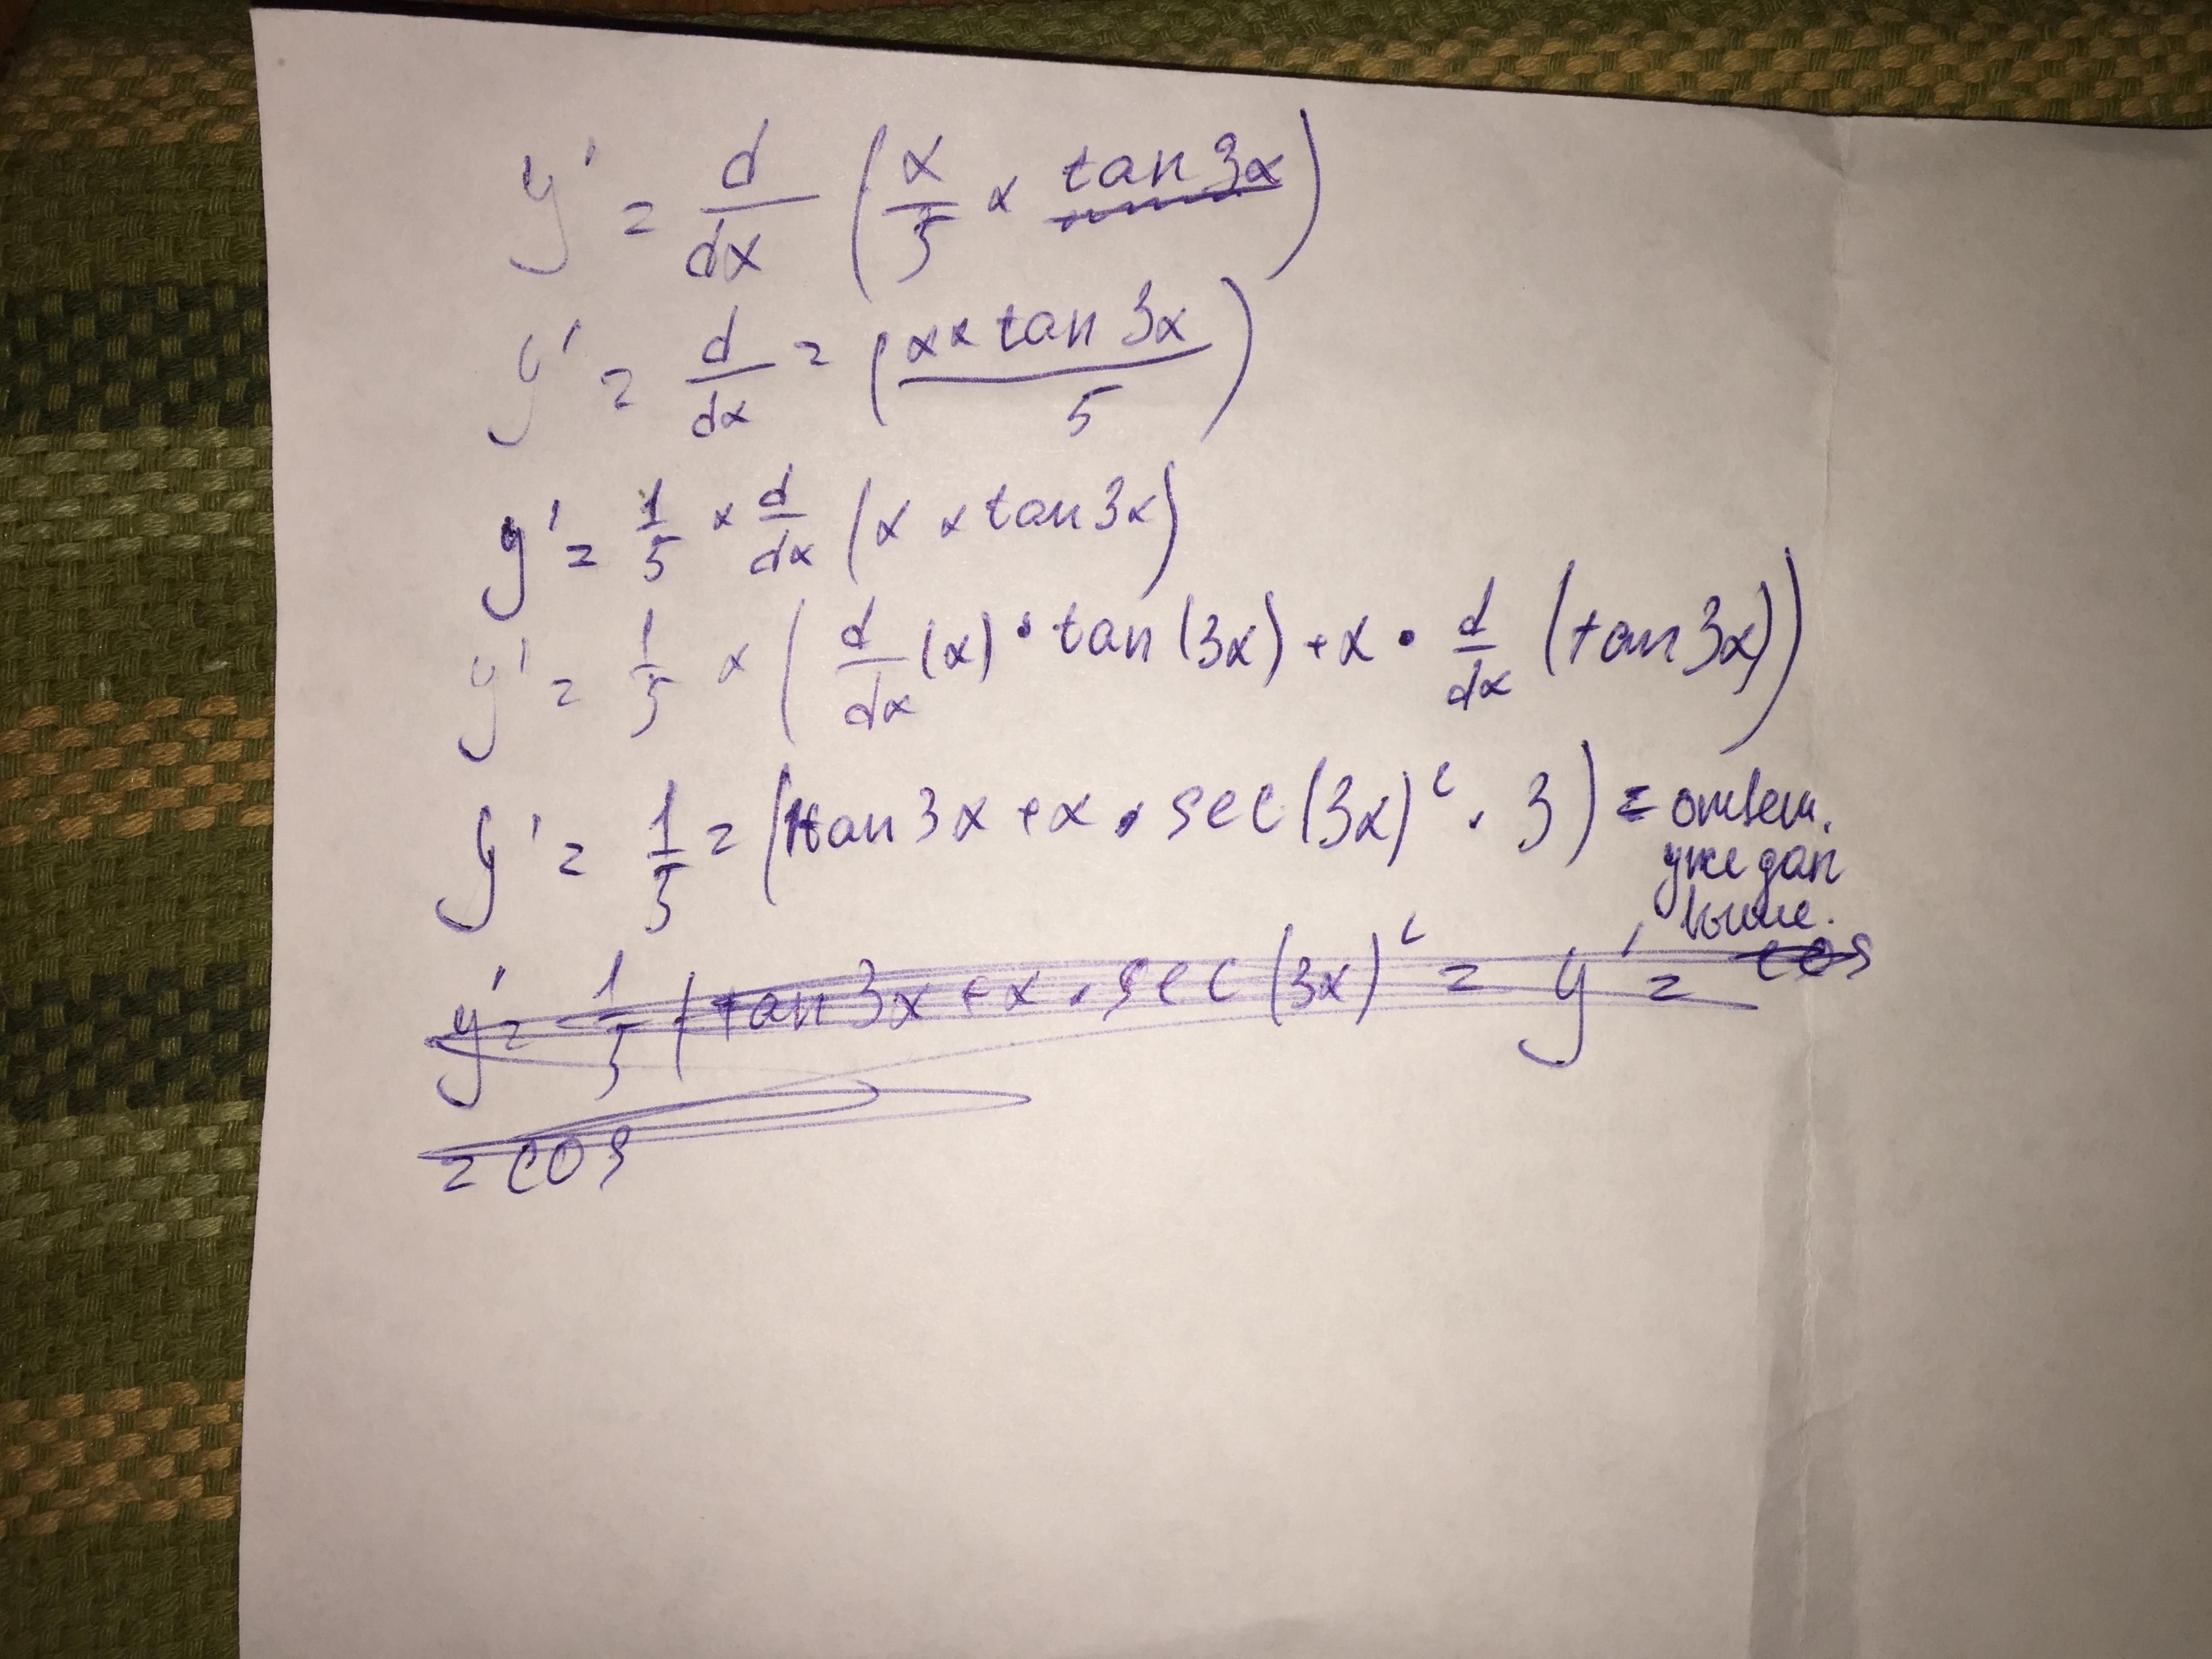 y' = d/dx (x/5 × tan 3x)
y' = d/dx = (x × tan 3x / 5)
y' = 1/5 × d/dx (x × tan 3x)
y' = 1/5 × (d/dx (x) · tan (3x) + x · d/dx (tan 3x))
y' = 1/5 = (tan 3x + x · sec (3x)² · 3) = ответ.
уже дан
выше.
y' = 1/5 (tan 3x + x · sec (3x)² = y' = cos
= cos